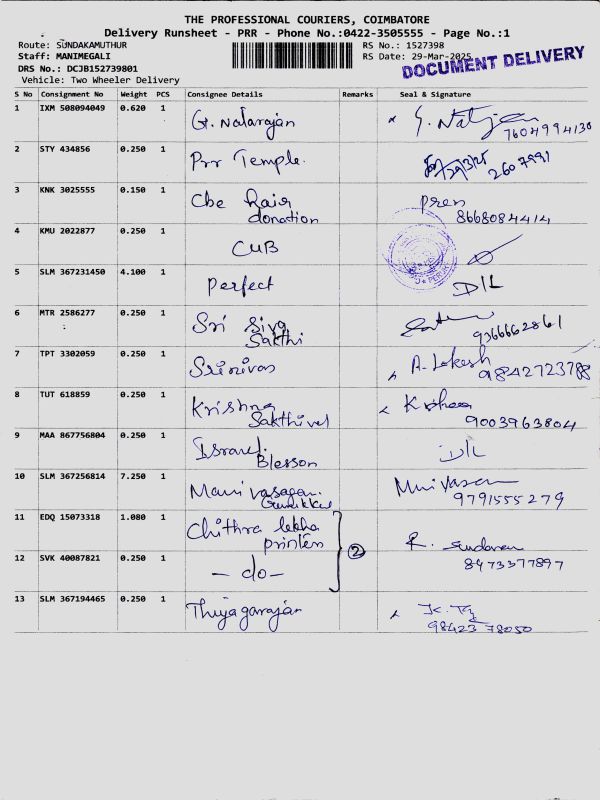 THE PROFESSIONAL COURIERS, COIMBATORE
Delivery Runsheet - PRR - Phone No.:0422-3505555 - Page No.:1
Route: SUNDAKAMUTHUR RS No.: 1527398
Staff: MANIMEGALI RS Date: 29-Mar-2025
DOCUMENT DELIVERY
DRS No.: DCJB152739801
Vehicle: Two Wheeler Delivery
S No Consignment No Weight PCS Consignee Details Remarks Seal & Signature
1 IXM 508094049 0.620 1 G. Natarajan
7604994130
2 STY 434856 0.250 1 Prr Temple 29/3/25
2607991
3 KNK 3025555 0.150 1 Cbe Hair Pren
donation 8668084414
4 KMU 2022877 0.250 1 CUB
5 SLM 367231450 4.100 1 Perfect D/L
6 MTR 2586277 0.250 1 Sri Siva
Sakthi 9366662861
7 TPT 3302059 0.250 1 Srinivas A. Lokesh
9842723788
8 TUT 618859 0.250 1 Krishna
Sakthivel 9003963804
9 MAA 867756804 0.250 1 Isravel D/L
Blesson
10 SLM 367256814 7.250 1 Manivasagan
9791555279
11 EDQ 15073318 1.080 1 Chithra lekha
printers 2 R. Sundaram
12 SVK 40087821 0.250 1 - do - 8473377897
13 SLM 367194465 0.250 1 Thiyagarajan
98423 78050